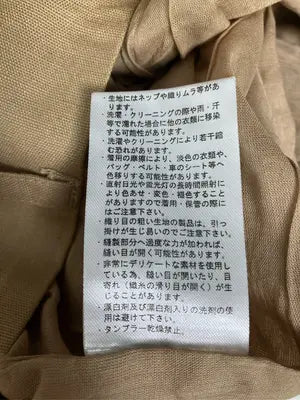 ・生地にはネップや織りムラ等があ
ります。
・洗濯・クリーニングの際や雨・汗
等で濡れた場合に他の衣類に移染
する可能性があります。
・洗濯やクリーニングにより若干縮
む恐れがあります。
・着用の摩擦により、淡色の衣類や、
バッグ・ベルト・車のシート等へ
色移りする可能性があります。
・直射日光や蛍光灯の長時間照射に
より色あせ・変色・褪色することが
ありますので着用・保管の際に
はご注意下さい。
・織り目の粗い生地の製品は、引っ
掛けが生じ易いのでご注意下さい。
・縫製部分へ過度な力が加われば、
縫い目が開く可能性があります。
・非常にデリケートな素材を使用し
ている為、縫い目が開いたり、目
寄れ（織糸の滑り目が開く）が生
じることがあります。
・漂白剤及び漂白剤入りの洗剤の使
用は避けて下さい。
・タンブラー乾燥禁止。